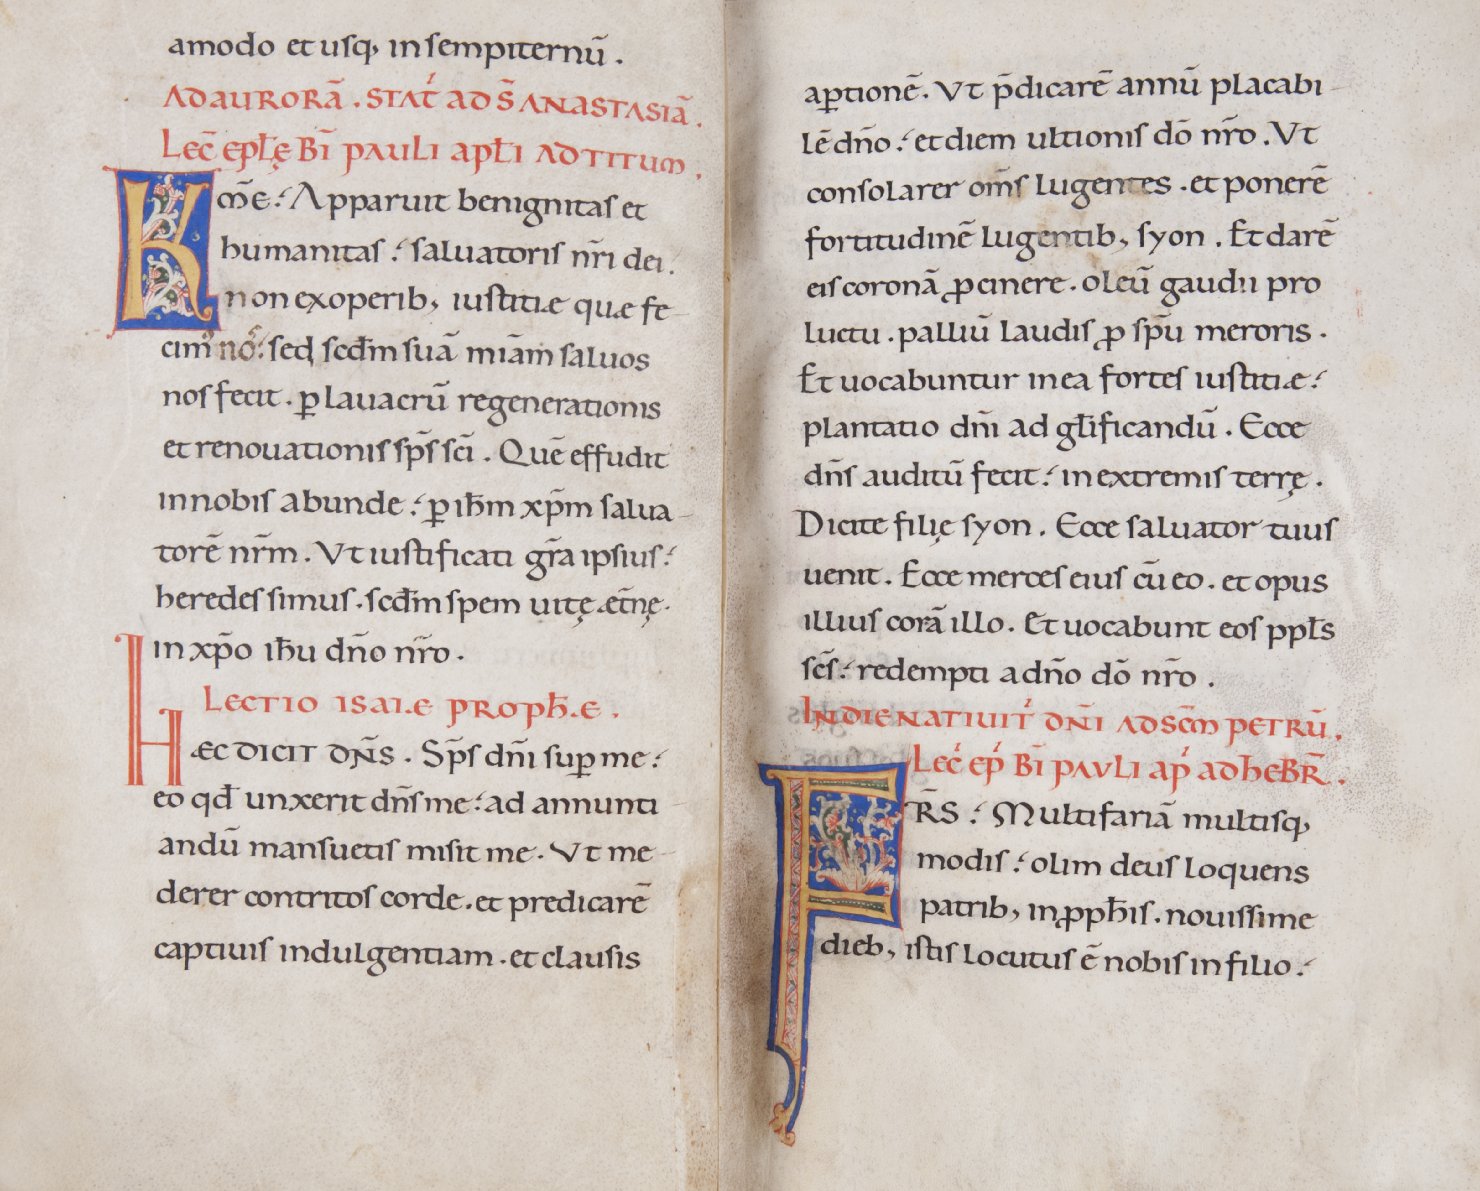 amodo et usq, in sempiternū.
AD AURORĀ. STAT̄ AD S̄ ANASTASIĀ.
LEC̄ EPLĘ BI PAULI APLI AD TITUM.
KM̄E: Apparuit benignitas et
humanitas: saluatoris nr̄i dei.
non ex operib, iustitiæ quæ fe-
cim' nos: sed scd̄m suā miām saluos
nos fecit. ꝑ lauacrū regenerationis
et renouationis sp̄s sc̄i. Quē effudit
in nobis abunde: ꝑ ih̄m xp̄m salua-
torē nr̄m. Vt iustificati gr̄a ipsius:
heredes simus. scd̄m spem uitę æt̄nę.
in xp̄o ih̄u dn̄o nr̄o.
LECTIO ISAIÆ PROPH̄Æ.
HÆC DICIT DN̄S. Sp̄s dn̄i suꝑ me:
eo qd̄ unxerit dn̄s me: ad annunti-
andū mansuetis misit me. Vt me-
derer contritos corde. et predicarē
captiuis indulgentiam. et clausis
aꝑtionē. Vt p̄dicarē annū placabi-
lē dn̄o: et diem ultionis dō nr̄o. Vt
consolarer om̄s lugentes. et ponerē
fortitudinē lugentib, syon. Et darē
eis coronā ꝓ cinere. oleū gaudii pro
luctu. palliū laudis ꝓ sp̄u meroris.
Et uocabuntur in ea fortes iustitiæ:
plantatio dn̄i ad gl̄ificandū. Ecce
dn̄s auditū fecit: in extremis terrę.
Dicite filię syon. Ecce saluator tuus
uenit. Ecce merces eius cū eo. et opus
illius corā illo. Et uocabunt eos ppl̄s
sc̄s: redempti a dn̄o dō nr̄o.
IN DIE NATIUIT' DN̄I AD SC̄M PETRŪ.
LEC' EP' BI PAULI AP' AD HEBR̄.
FR̄S: Multifariā multisq,
modis: olim deus loquens
patrib, in ꝓph̄is. nouissime
dieb, istis locutus ē nobis in filio: